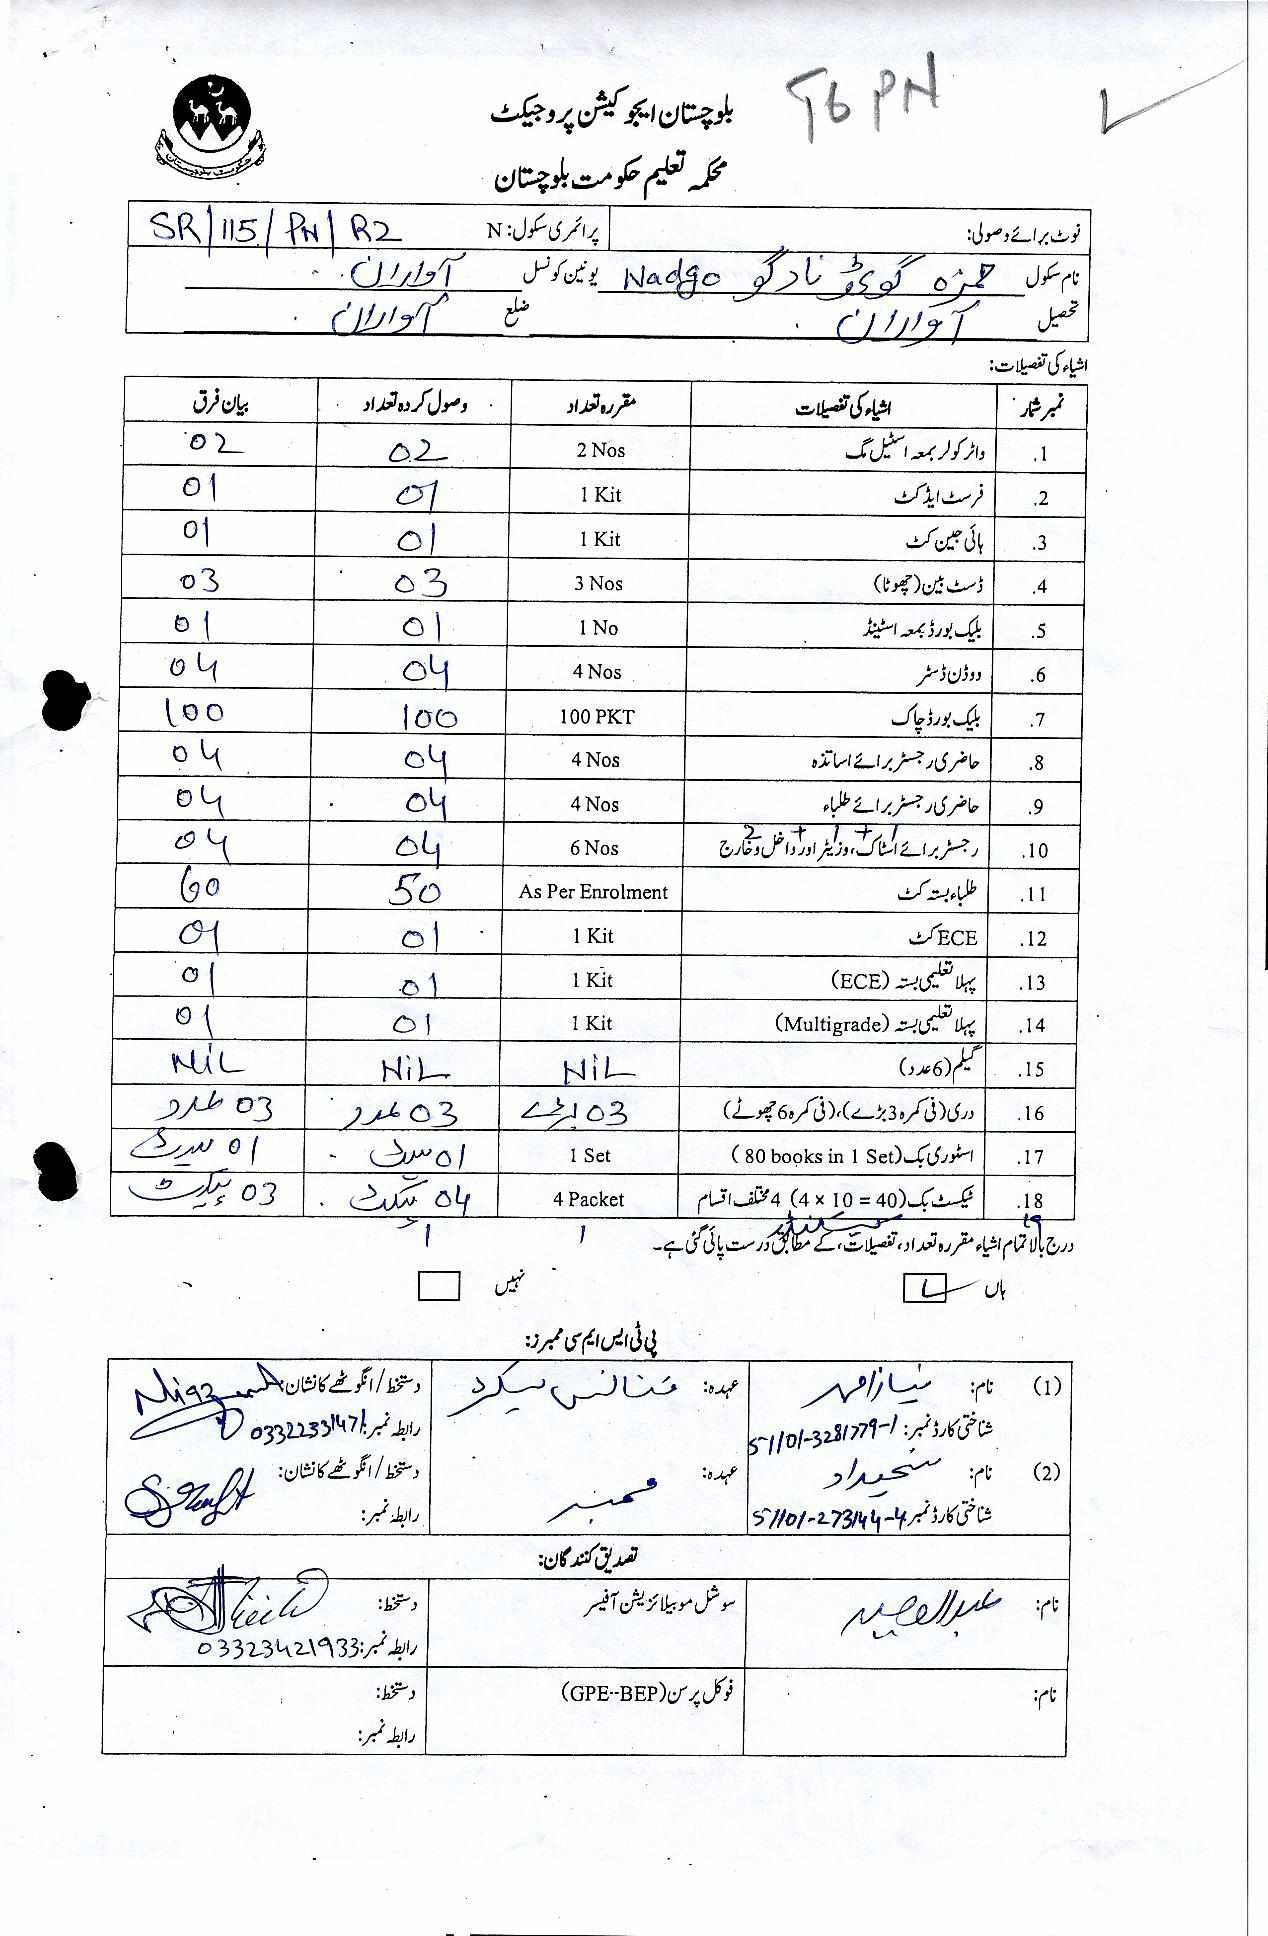 T6 PN
بلوچستان ایجوکیشن پروجیکٹ
محکمہ تعلیم حکومت بلوچستان
نوٹ برائے وصولی: پرائمری سکول: N SR/115/PN/R2
نام سکول حمزہ گوٹھ نادگو Nadgo یونین کونسل آواران
تحصیل آواران ضلع آواران
اشیاء کی تفصیلات:
نمبر شمار اشیاء کی تفصیلات مقررہ تعداد وصول کردہ تعداد بیان فرق
1. واٹر کولر بمعہ اسٹیل مگ 2 Nos 02 02
2. فرسٹ ایڈ کٹ 1 Kit 01 01
3. ہائی جین کٹ 1 Kit 01 01
4. ڈسٹ بین (چھوٹا) 3 Nos 03 03
5. بلیک بورڈ بمعہ اسٹینڈ 1 No 01 01
6. ووڈن ڈسٹر 4 Nos 04 04
7. بلیک بورڈ چاک 100 PKT 100 100
8. حاضری رجسٹر برائے اساتذہ 4 Nos 04 04
9. حاضری رجسٹر برائے طلباء 4 Nos 04 04
10. رجسٹر برائے اسٹاک، وزیٹر اور داخل و خارج 2+1+1 6 Nos 04 04
11. طلباء بستہ کٹ As Per Enrolment 50 60
12. ECE کٹ 1 Kit 01 01
13. پہلا تعلیمی بستہ (ECE) 1 Kit 01 01
14. پہلا تعلیمی بستہ (Multigrade) 1 Kit 01 01
15. گیلم (6 عدد) NiL NiL NiL
16. دری (فی کمرہ 3 بڑے)، (فی کمرہ 6 چھوٹے) 03 بڑے 03 عدد 03 عدد
17. اسٹوری بک (80 books in 1 Set) 1 Set 01 سیٹ 01 سیٹ
18. ٹیکسٹ بک (4 × 10 = 40) 4 مختلف اقسام 4 Packet 04 پیکٹ 03 پیکٹ
19 1 1
درج بالا تمام اشیاء مقررہ تعداد، تفصیلات، کے مطابق درست پائی گئی ہے۔
ہاں نہیں
پی ٹی ایس ایم سی ممبرز:
(1) نام: نیاز احمد عہدہ: فنانس سیکرٹ دستخط/انگوٹھے کا نشان:
شناختی کارڈ نمبر: 51101-3281779-1 رابطہ نمبر: 03322331471
(2) نام: عہدہ: ممبر دستخط/انگوٹھے کا نشان:
شناختی کارڈ نمبر 51101-273144-4 رابطہ نمبر:
تصدیق کنندگان:
نام: سوشل موبیلائزیشن آفیسر دستخط:
رابطہ نمبر: 03323421933
نام: فوکل پرسن (GPE--BEP) دستخط:
رابطہ نمبر: